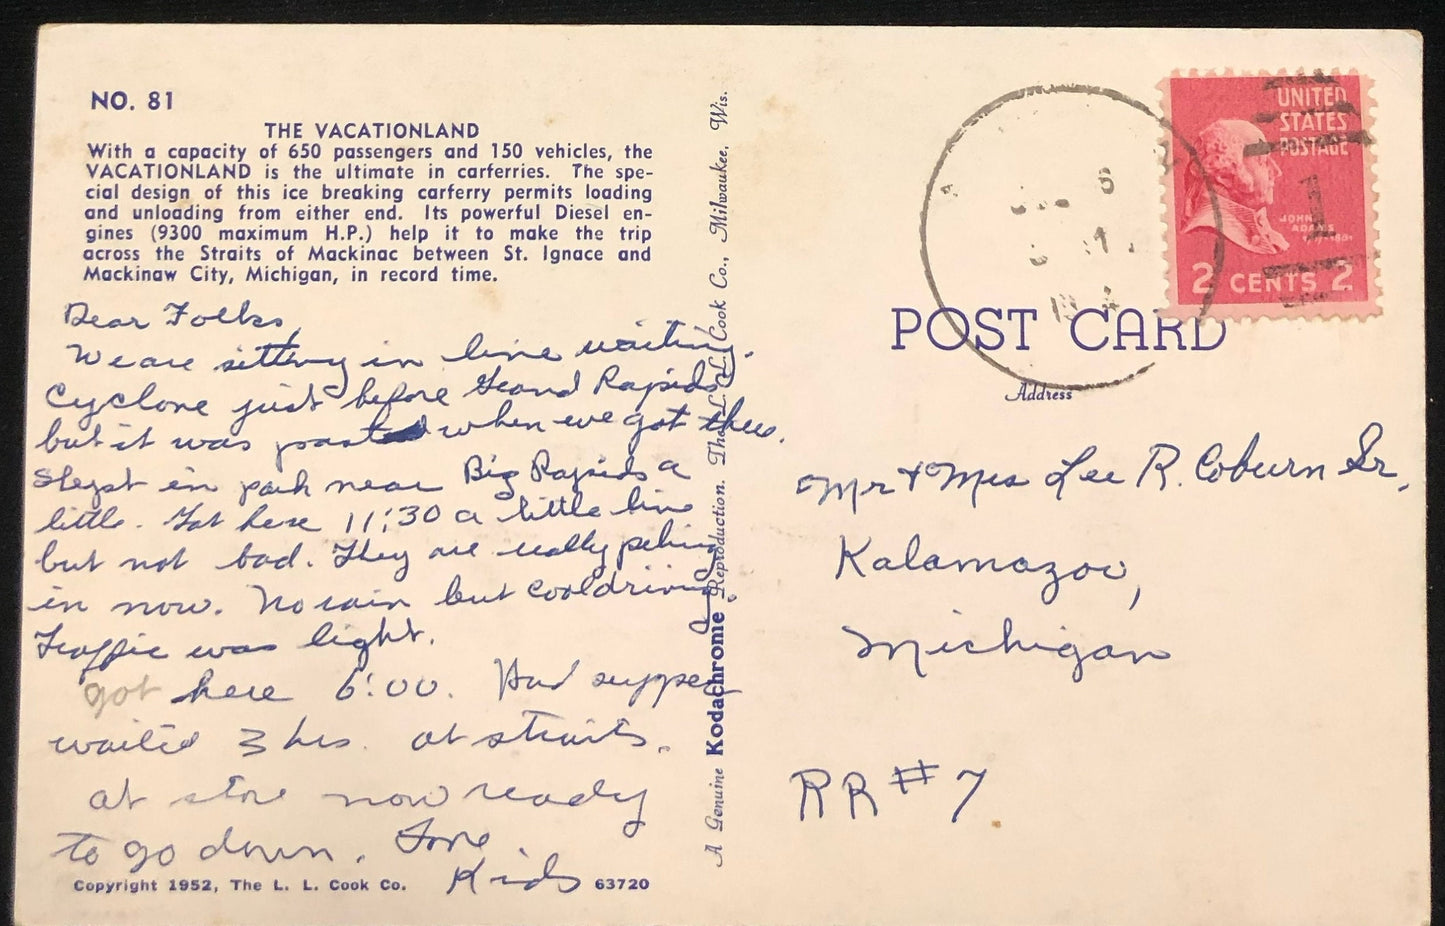 NO. 81
THE VACATIONLAND
With a capacity of 650 passengers and 150 vehicles, the
VACATIONLAND is the ultimate in carferries. The spe-
cial design of this ice breaking carferry permits loading
and unloading from either end. Its powerful Diesel en-
gines (9300 maximum H.P.) help it to make the trip
across the Straits of Mackinac between St. Ignace and
Mackinaw City, Michigan, in record time.
Dear Folks,
We are sitting in line waiting.
Cyclone just before Grand Rapids
but it was past when we got there.
Slept in park near Big Rapids a
little. Got here 11:30 a little line
but not bad. They are really piling
in now. No rain but cool driving.
Traffic was light.
got here 6:00. Had supper
waited 3 hrs. at straits.
at store now ready
to go down. Love
Kids
Copyright 1952, The L. L. Cook Co.
63720
A Genuine Kodachrome Reproduction. The L. L. Cook Co., Milwaukee, Wis.
UNITED
STATES
POSTAGE
JOHN
ADAMS
2 CENTS 2
1
POST CARD
Address
Mr & Mrs Lee R. Coburn Sr,
Kalamazoo,
Michigan
RR #7